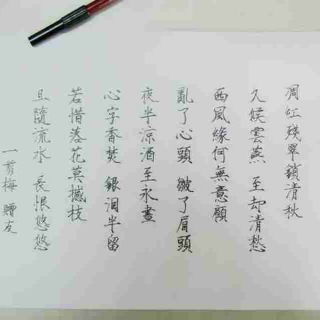 凋紅殘翠鎖清秋
久候雲燕 至却清愁
西風緣何無意顧
亂了心頭 皺了眉頭
夜半涼酒至永晝
心字香焚 銀泪半留
若惜落花莫撼枝
且隨流水 長恨悠悠
一剪梅 贈友